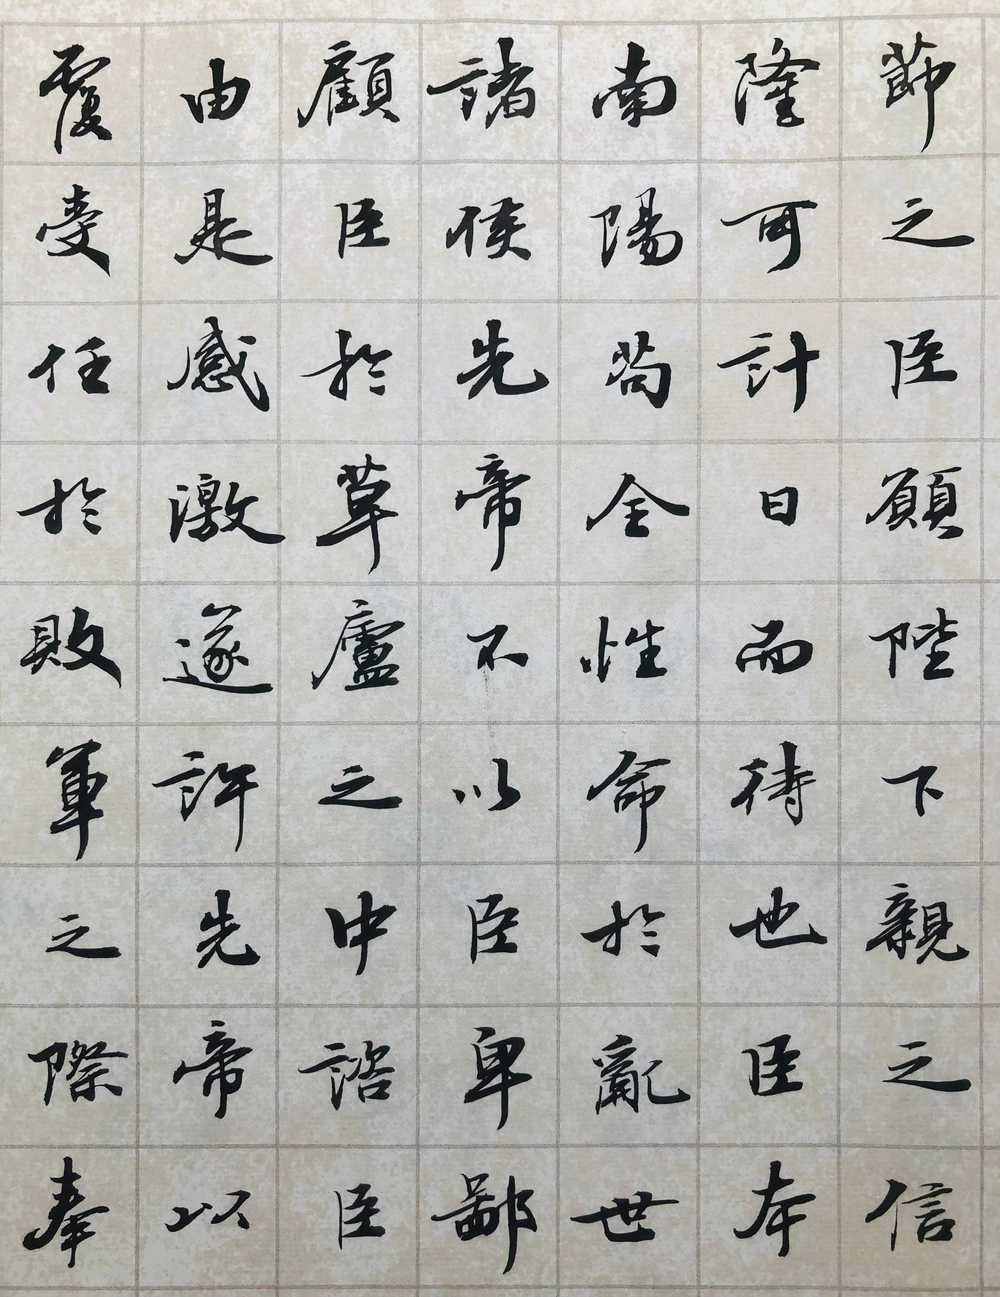 節之臣願陛下親之信
隆可計日而待也臣本
南陽苟全性命於亂世
諸侯先帝不以臣卑鄙
顧臣於草廬之中諮臣
由是感激遂許先帝以
覆受任於敗軍之際奉